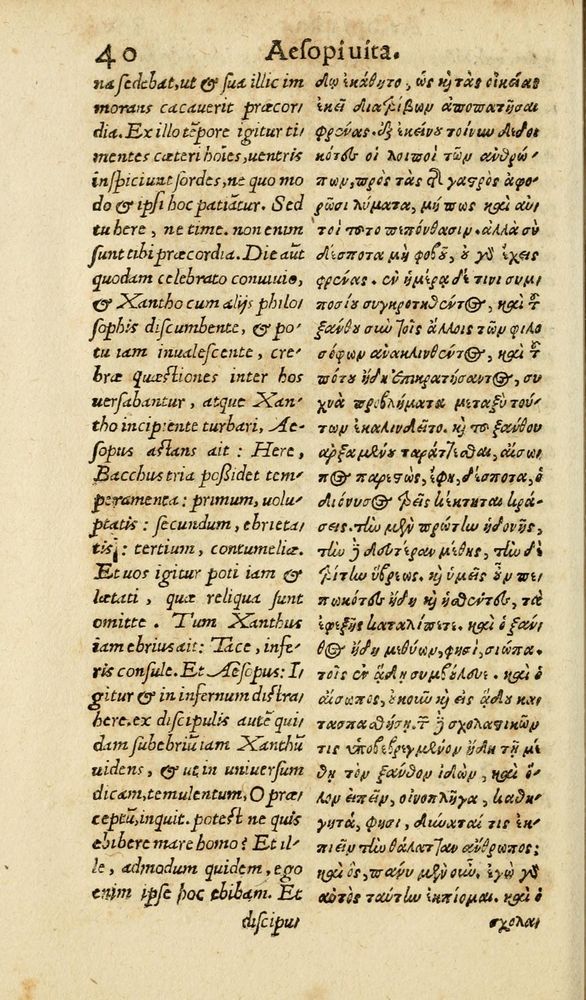 40 Aesopi uita.
na sedebat, ut & sua illic im
morans cacauerit præcor/
dia. Ex illo tẽpore igitur ti/
mentes cæteri hoĩes, uentris
inspiciunt sordes, ne quo mo
do & ipsi hoc patiãtur. Sed
tu here, ne time. non enim
sunt tibi præcordia. Die aũt
quodam celebrato conuiuio,
& Xantho cum alijs philo/
sophis discumbente, & po/
tu iam inualescente, cre/
bræ quæstiones inter hos
uersabantur, atque Xan/
tho incipiente turbari, Ae/
sopus astans ait: Here,
Bacchus tria poßidet tem/
peramenta: primum, uolu/
ptatis: secundum, ebrieta/
tis: tertium, contumeliæ.
Et uos igitur poti iam &
lætati, quæ reliqua sunt
omitte. Tum Xanthus
iam ebrius ait: Tace, infe/
ris consule. Et Aesopus: I/
gitur & in infernum distra/
here. ex discipulis autẽ qui/
dam subebriũ iam Xanthũ
uidens, & ut in uniuersum
dicam, temulentum, O præ/
ceptũ, inquit. potest ne quis
ebibere mare homo? Et il/
le, admodum quidem, ego
enim ipse hoc ebibam. Et
discipu/
λῳ ἐκάθητο, ὡς κὴ τὰς οἰκείας
ἐκεῖ διατρίβων ἀποπατῆσαι
φρένας. ἐξ ἐκείνου τοίνυν δεδοι
κότες οἱ λοιποὶ τῶν ἀνθρώ/
πων, πρὸς τὰς τῆς γαστρὸς ἀφο/
ρῶσι λύματα, μή πως καὶ αὐ/
τοὶ τοῦτο πεπόνθασιν. ἀλλὰ σὺ
δέσποτα μὴ φοβοῦ, οὐ γὸ ἔχεις
φρένας. ἐν ἡμέρᾳ δέ τινι συμ/
ποσίου συγκροτηθέντος, καὶ τοῦ
ξάνθου σὺν τοῖς ἄλλοις τῶν φιλο
σόφων ἀνακλινθέντος, καὶ τοῦ
πότου ἤδη ἐπικρατήσαντος, συ
χνὰ προβλήματα μεταξὺ τού/
των ἐκαλινδεῖτο. κὴ τοῦ ξάνθου
ἀρξαμένου ταράττεσθαι, αἴσω/
πος παρεστὼς, ἔφη, δέσποτα, ὁ
διόνυσος τρεῖς κέκτηται κρά/
σεις. τὴν μὲν πρώτην ἡδονῆς,
τὴν δὲ δευτέραν μέθης, τὴν δὲ
τρίτην ὕβρεως. κὴ ὑμεῖς οὖν πε/
πωκότες ἤδη κὴ ἡσθέντες, τὰ
ἐφεξῆς καταλίπετε. καὶ ὁ ξάν/
θος ἤδη μεθύων, φησὶ, σιώπα.
τοῖς ἐν ᾅδῃ συμβούλευε. καὶ ὁ
αἴσωπος, ἐκοῦν κὴ εἰς ᾅδου κα/
τασπαθήσῃ. τῶν δὲ σχολαστικῶν
τις ὑποβεβρεγμένον ἤδη τῇ μέ
θῃ τὸν ξάνθον ἰδὼν, καὶ ὅ/
λον εἰπεῖν, οἰνοπλῆγα, καθη/
γητὰ, φησὶ, δύναταί τις ἐκ/
πιεῖν τὴν θάλατταν ἄνθρωπος;
καὶ ὃς, πάνυ μὲν οὖν. ἐγὼ γὸ
αὐτὸς ταύτην ἐκπίομαι. καὶ ὁ
σχολα/